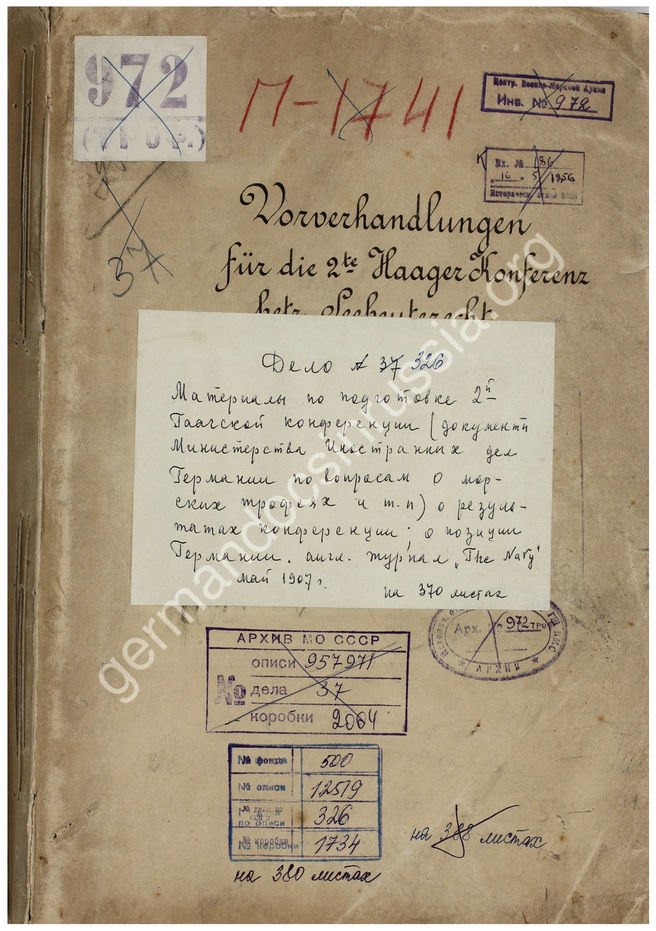 972
(ТРОФ.)
П-1741
Центр. Военно-Морской Архив
Инв. № 972
Вх. № 186
"16" 5 1956
37
Vorverhandlungen
für die 2te Haager Konferenz
betr. Seebeuterecht
Дело № 37 326
Материалы по подготовке 2й
Гаагской конференции (документы
Министерства Иностранных дел
Германии по вопросам о мор-
ских трофеях и т.п) о резуль-
татах конференции; о позиции
Германии. англ. журнал „The Navy"
май 1907 г.
на 370 листах
Арх. № 972 тро
АРХИВ МО СССР
описи 957971
№ дела 37
коробки 2004
№ фонда 500
№ описи 12519
по описи 326
№ коробки 1734
на 380 листах
на 388 листах
germandocsinrussia.org